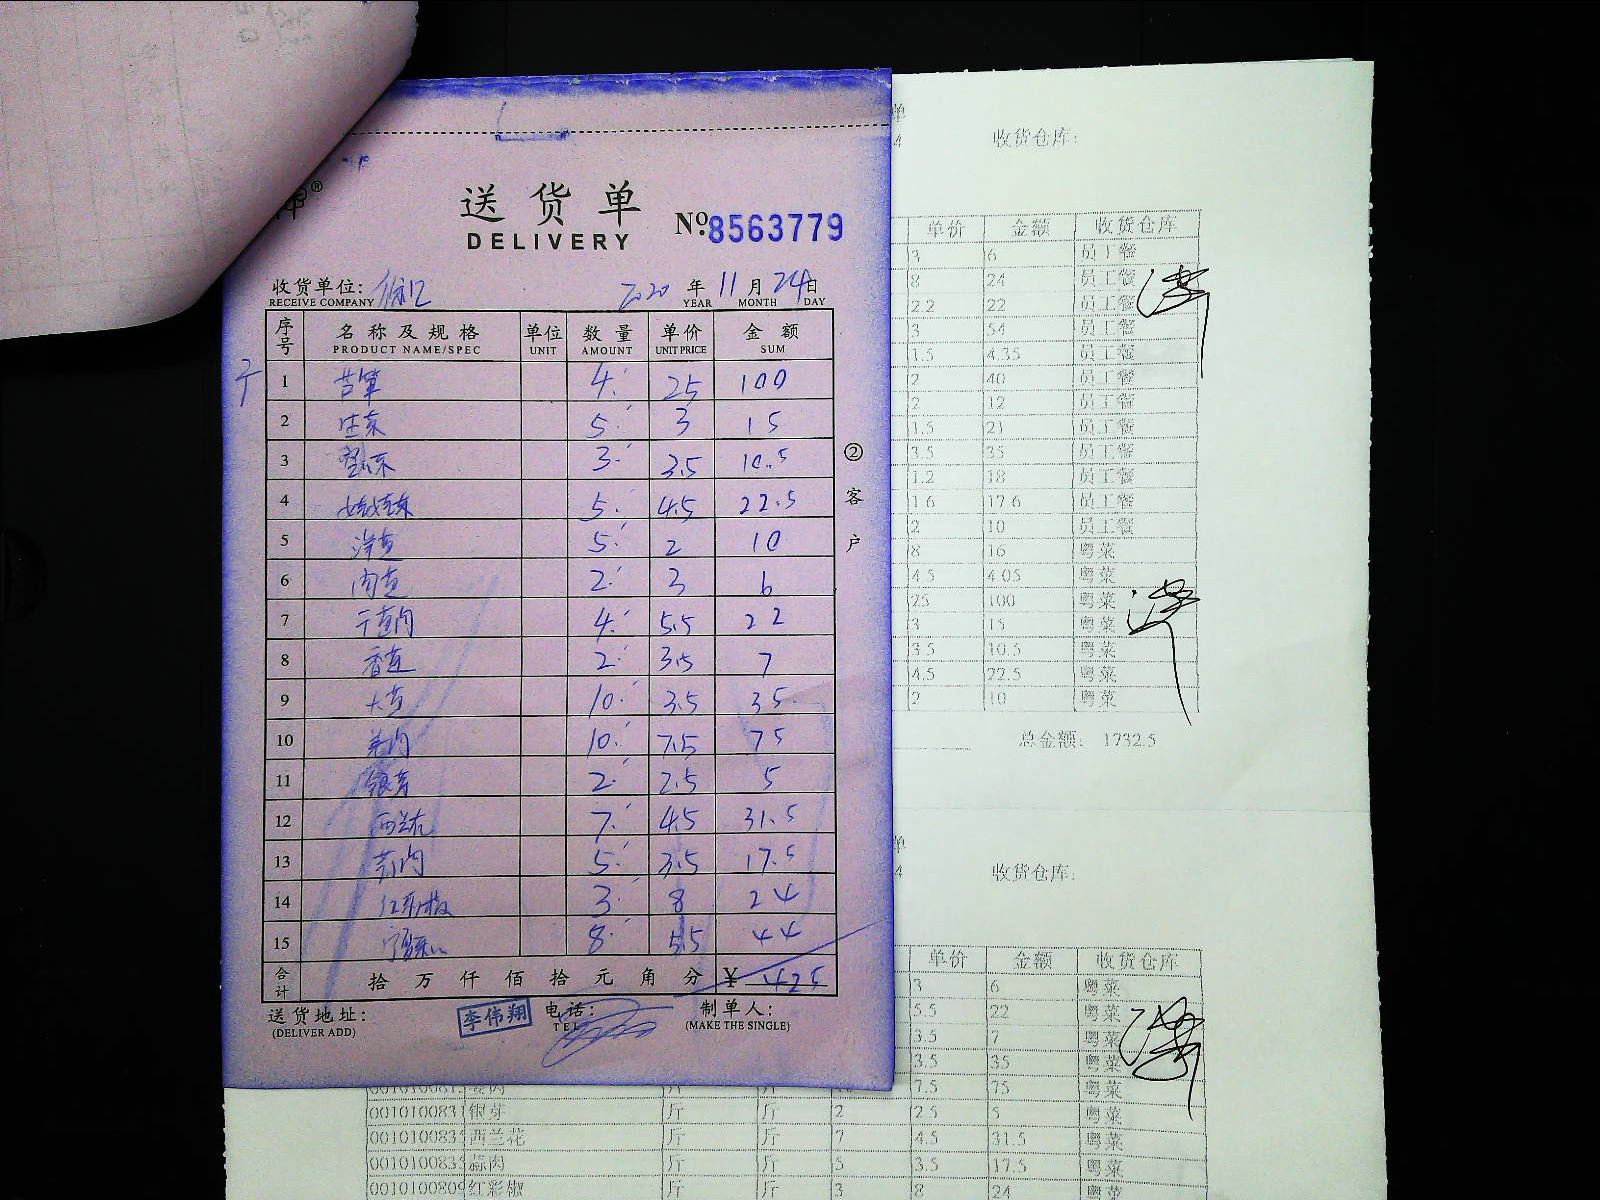 送货单
DELIVERY
№ 8563779
收货单位:
RECEIVE COMPANY
2020 年 11 月 24 日
YEAR MONTH DAY
序号 名称及规格 单位 数量 单价 金额
PRODUCT NAME/SPEC UNIT AMOUNT UNIT PRICE SUM
1 芦笋 4 25 100
2 生菜 5 3 15
3 3 3.5 10.5
4 娃娃菜 5 4.5 22.5
5 洋 5 2 10
6 肉 2 3 6
7 干 肉 4 5.5 22
8 香 2 3.5 7
9 大 10 3.5 35
10 姜肉 10 7.5 75
11 银芽 2 2.5 5
12 西兰花 7 4.5 31.5
13 蒜肉 5 3.5 17.5
14 红彩椒 3 8 24
15 8 5.5 44
合计 拾万仟佰拾元角分 ¥ 425
送货地址:
(DELIVER ADD)
李伟翔
电话:
TEL
制单人:
(MAKE THE SINGLE)
②客户
单
4 收货仓库:
单价 金额 收货仓库
3 6 员工餐
8 24 员工餐
2.2 22 员工餐
3 54 员工餐
1.5 4.35 员工餐
2 40 员工餐
2 12 员工餐
1.5 21 员工餐
3.5 35 员工餐
1.2 18 员工餐
1.6 17.6 员工餐
2 10 员工餐
8 16 粤菜
4.5 4.05 粤菜
25 100 粤菜
3 15 粤菜
3.5 10.5 粤菜
4.5 22.5 粤菜
2 10 粤菜
总金额: 1732.5
单
4 收货仓库:
单价 金额 收货仓库
3 6 粤菜
5.5 22 粤菜
3.5 7 粤菜
3.5 35 粤菜
7.5 75 粤菜
001010083 银芽 斤 斤 2 2.5 5 粤菜
001010083 西兰花 斤 斤 7 4.5 31.5 粤菜
001010083 蒜肉 斤 斤 5 3.5 17.5 粤菜
001010080 红彩椒 斤 斤 3 8 24 粤菜